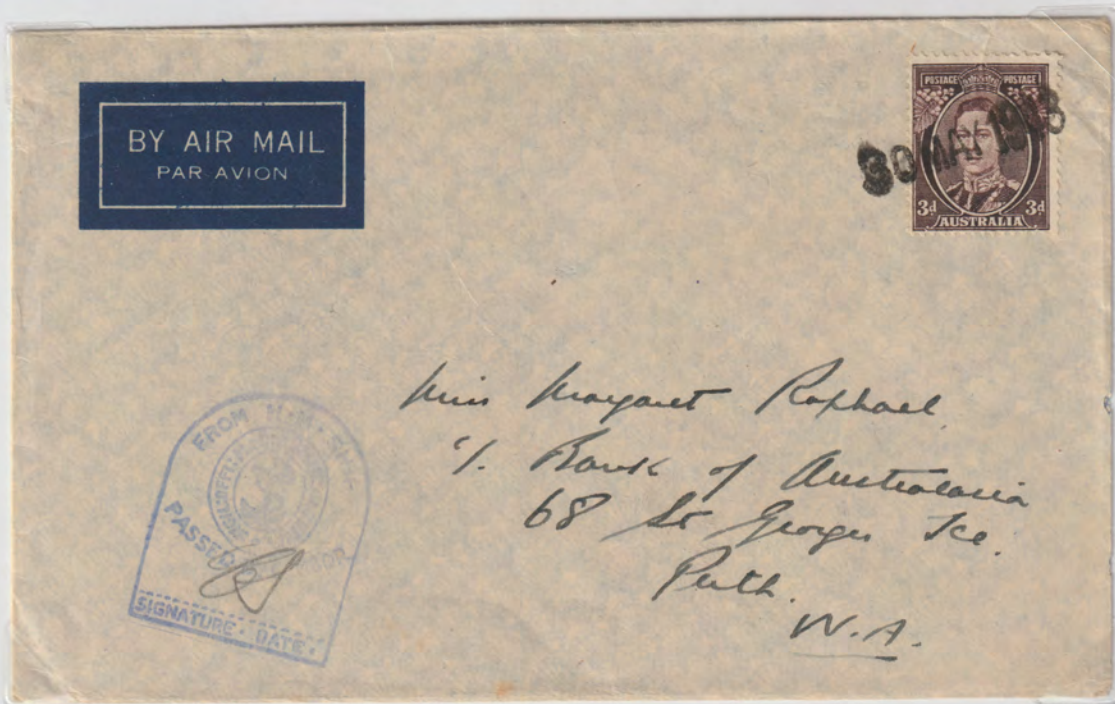 BY AIR MAIL
PAR AVION
POSTAGE POSTAGE
30 MAY 1943
3d 3d
AUSTRALIA
Miss Margaret Raphael
c/. Bank of Australasia
68 St Georges Tce.
Perth.
W.A.
FROM H.M. SHIP
PASSED
SIGNATURE. DATE.